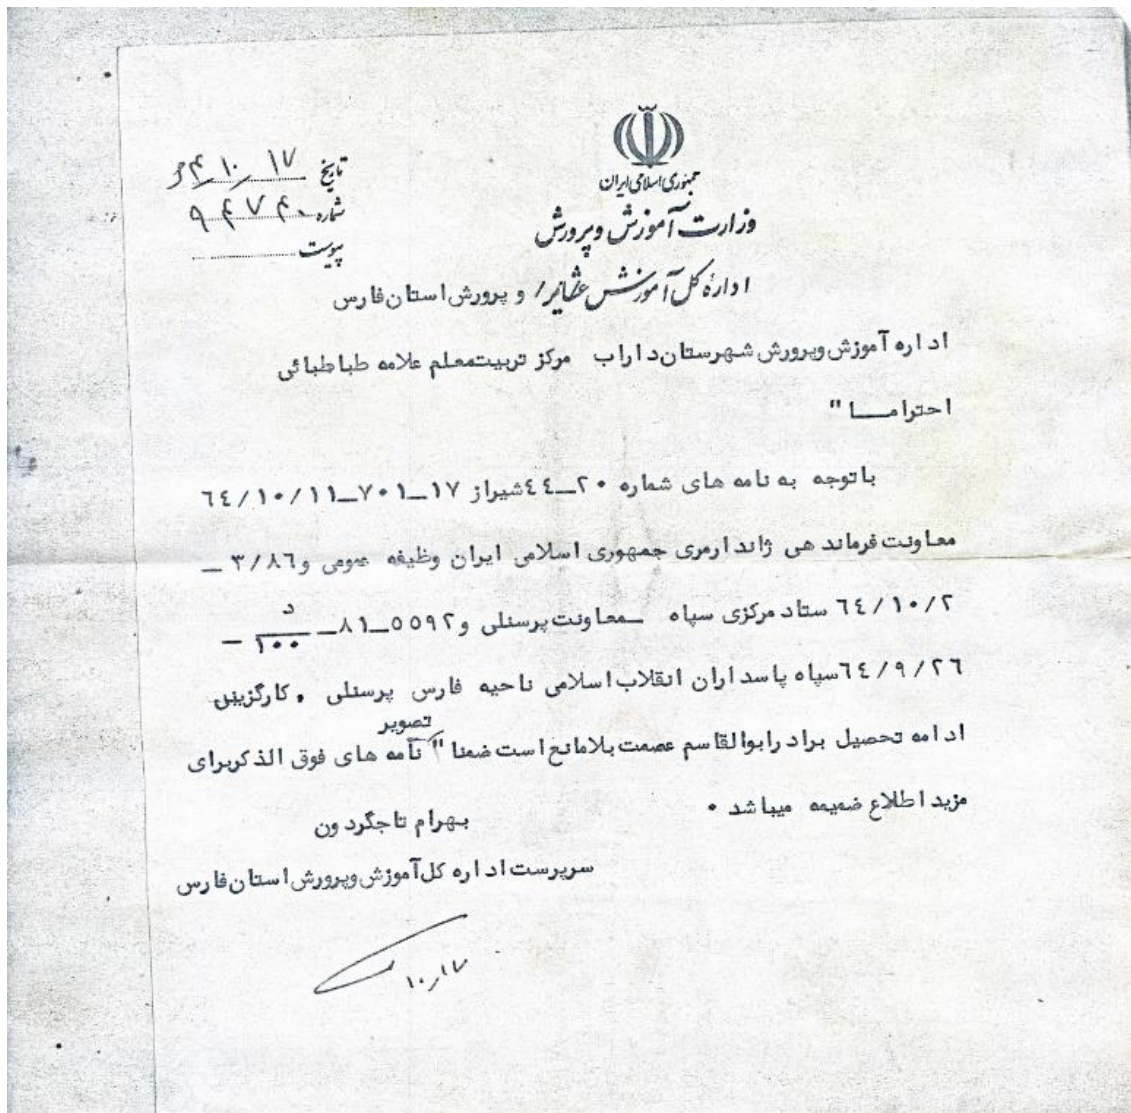 جمهوری اسلامی ایران
وزارت آموزش و پرورش
اداره کل آموزش عشایر / و پرورش استان فارس
تاریخ ۶۴/۱۰/۱۷
شماره ۹۴۷۴۰
پیوست
اداره آموزش وپرورش شهرستان داراب مرکز تربیت معلم علامه طباطبائی
احترامـــا "
باتوجه به نامه های شماره ۲۰_۴۴شیراز ۱۷_۷۰۱_۶۴/۱۰/۱۱
معاونت فرماندهی ژاندارمری جمهوری اسلامی ایران وظیفه عمومی و۳/۸۶ _
۶۴/۱۰/۲ ستاد مرکزی سپاه _معاونت پرسنلی و۵۵۹۲_۸۱_ د/۱۰۰ _
۶۴/۹/۲۶سپاه پاسداران انقلاب اسلامی ناحیه فارس پرسنلی , کارگزینی
تصویر
ادامه تحصیل برادرابوالقاسم عصمت بلامانع است ضمنا " نامه های فوق الذکربرای
مزید اطلاع ضمیمه میباشد ۰
بهرام تاجگردون
سرپرست اداره کل آموزش وپرورش استان فارس
۱۰/۱۷